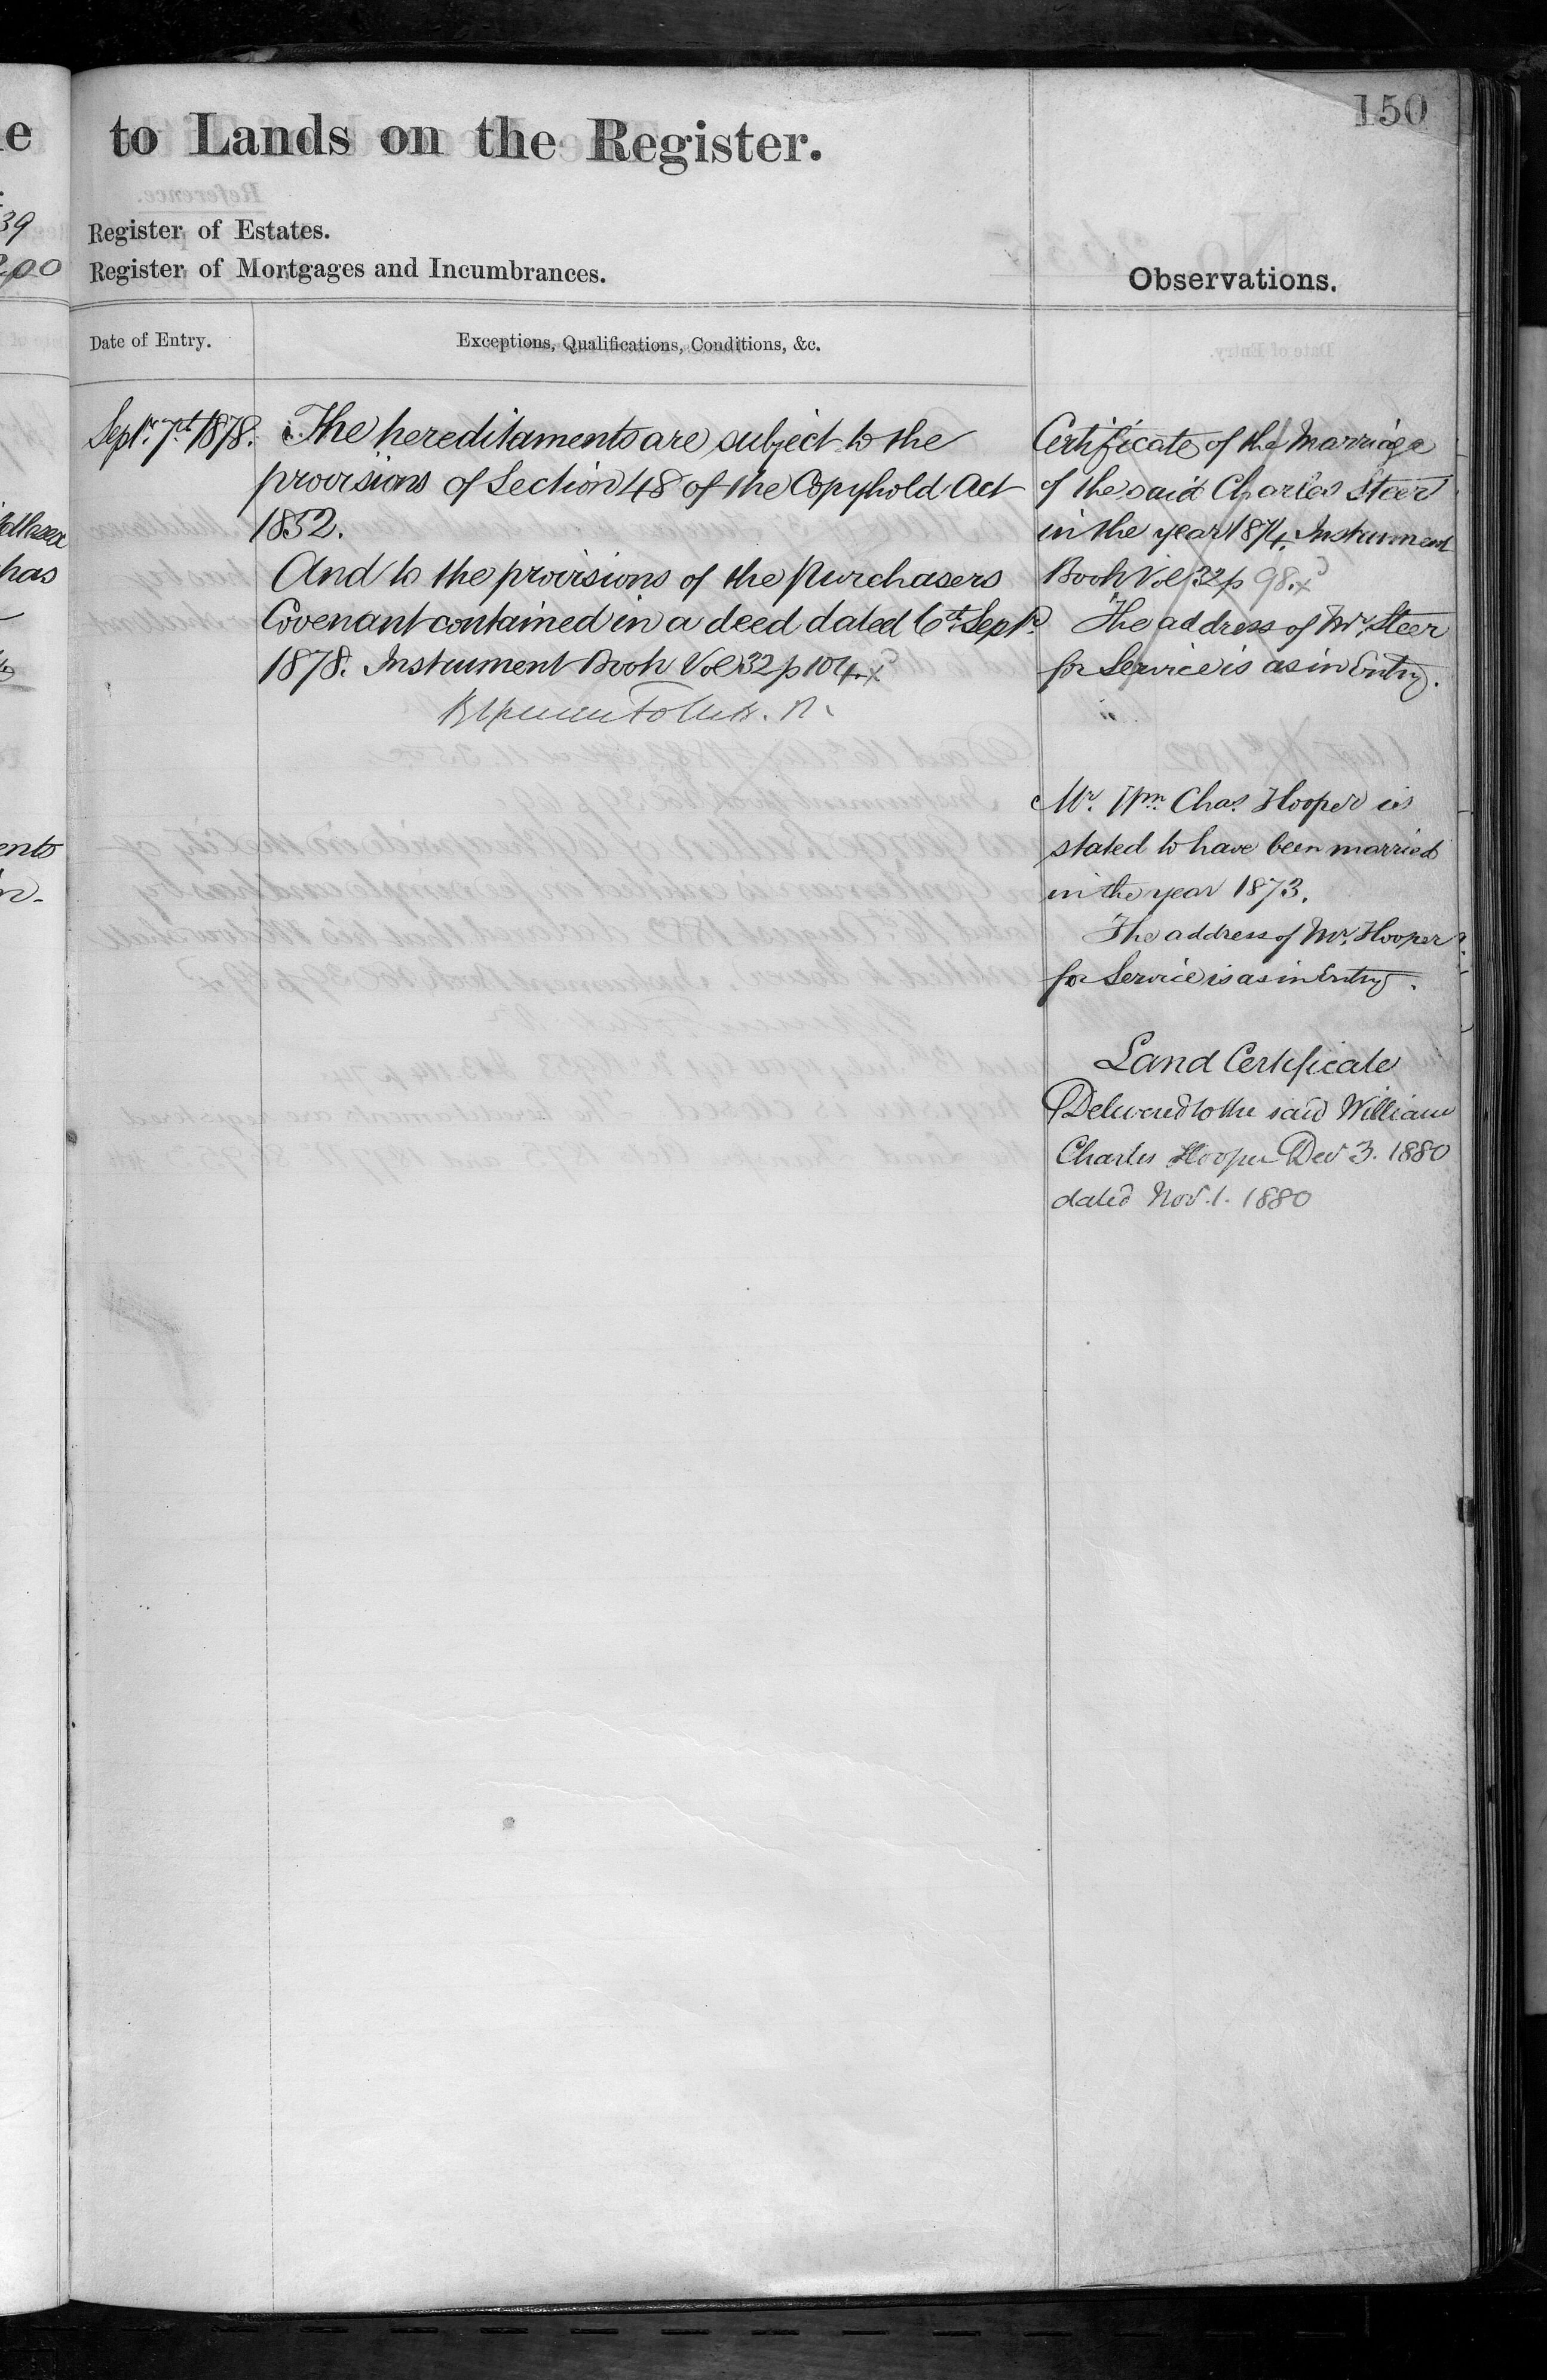 150
to Lands on the Register.
Register of Estates.
Register of Mortgages and Incumbrances.
Observations.
Date of Entry.
Exceptions, Qualifications, Conditions, &c.
Septr. 7th 1878.
The hereditaments are subject to the
provisions of Section 48 of the Copyhold Act
1852.
And to the provisions of the Purchasers
Covenant contained in a deed dated 6th Septr.
1878. Instrument Book Vol 32 p 104.
Certificate of the Marriage
of the said Charles Steer
in the year 1874. Instrument
Book Vol 32 p 98.
The address of Mr. Steer
for Service is as in Entry.
Mr. Wm. Chas. Hooper is
stated to have been married
in the year 1873.
The address of Mr. Hooper
for Service is as in Entry.
Land Certificate
Delivered to the said William
Charles Hooper Dec 3. 1880
dated Nov. 1. 1880
39
200
has